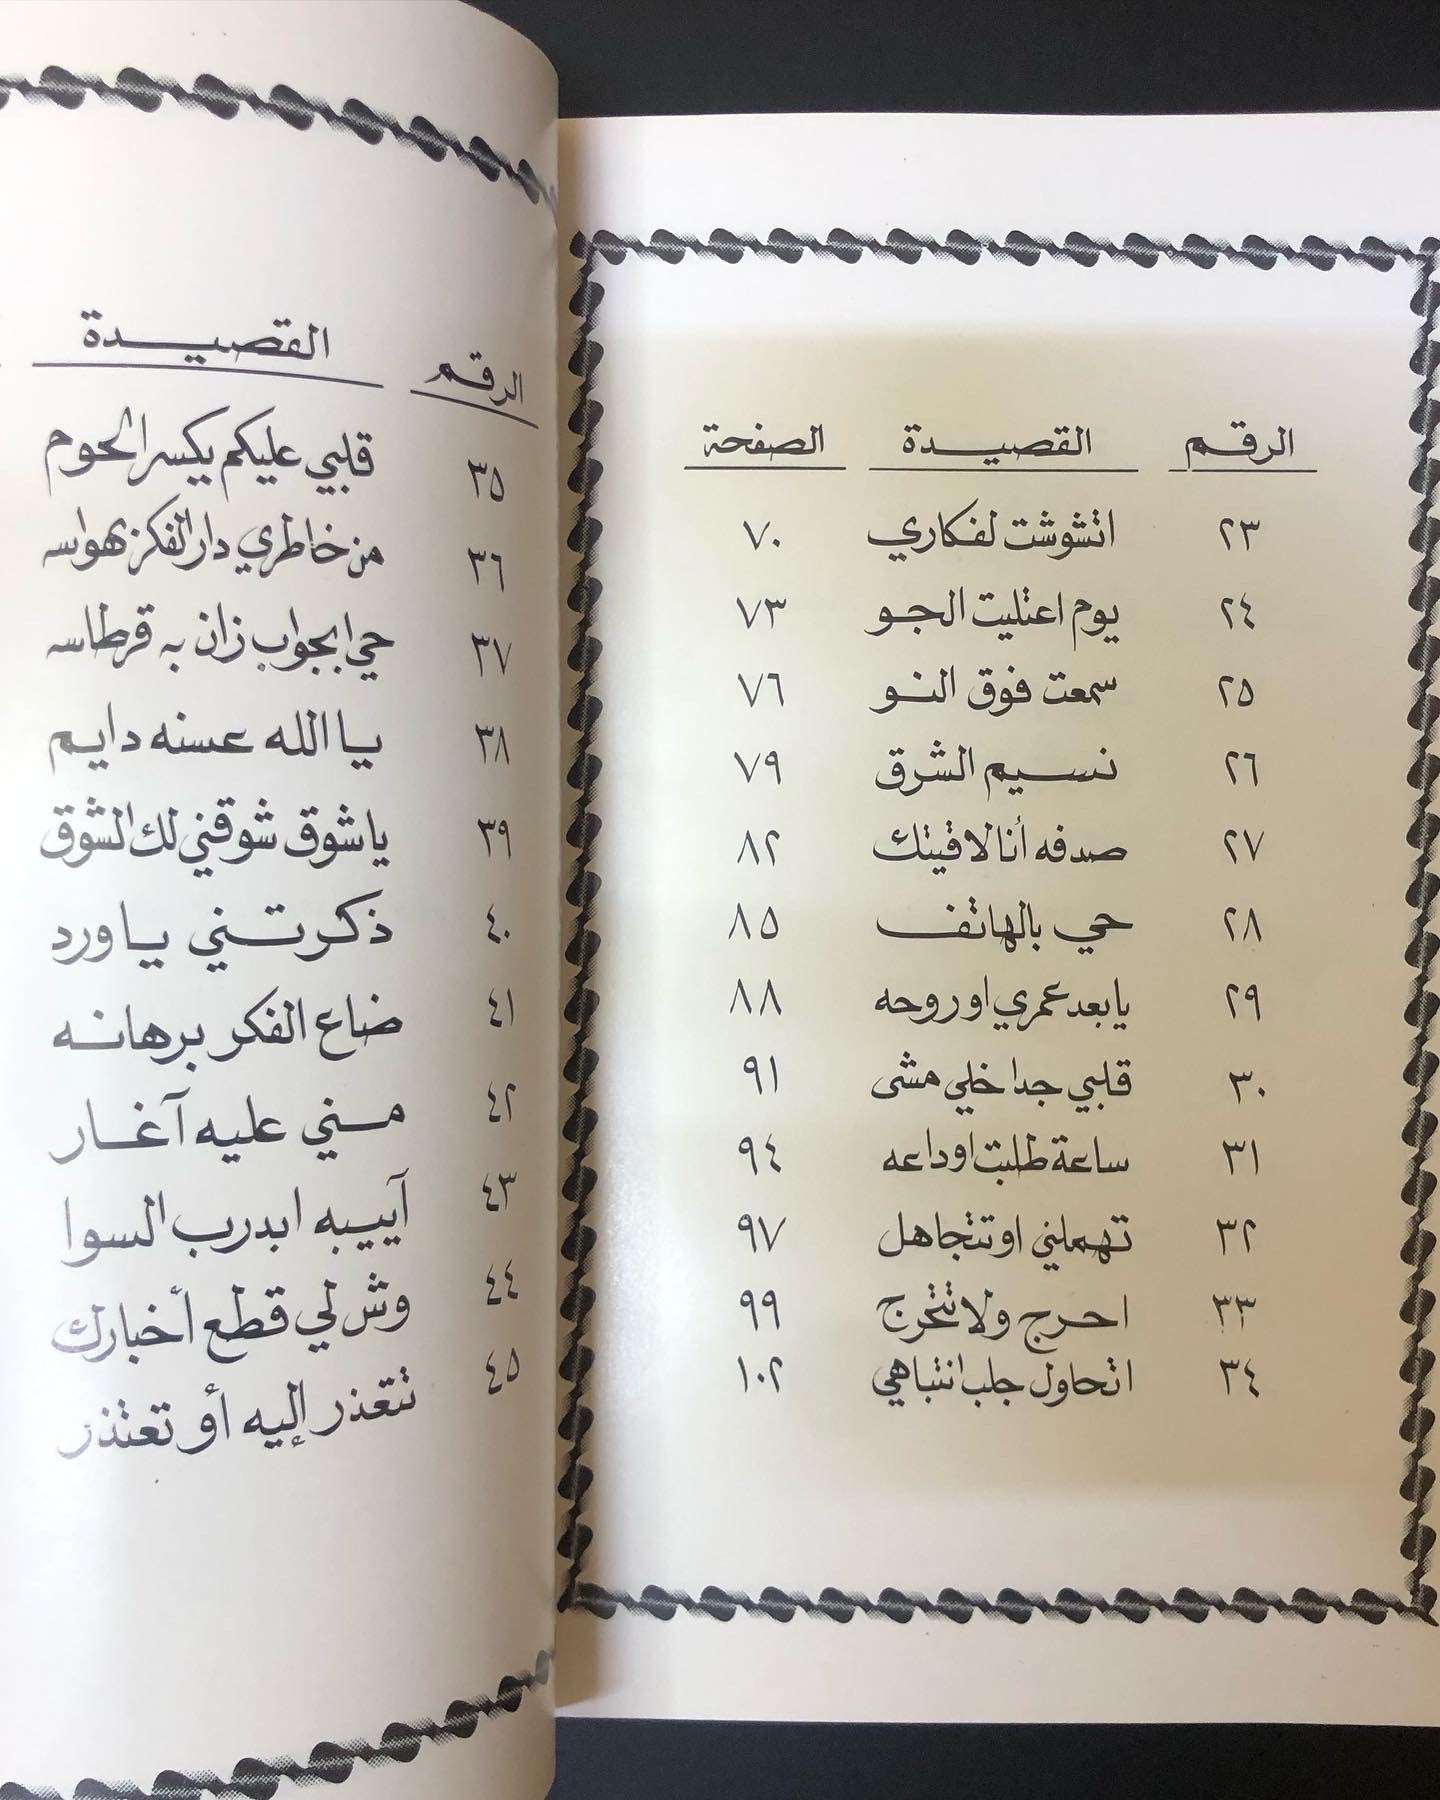 الرقم القصيدة الصفحة
٢٣ اتشوشت لفكاري ٧٠
٢٤ يوم اعتليت الجو ٧٣
٢٥ سمعت فوق النو ٧٦
٢٦ نسيم الشرق ٧٩
٢٧ صدفه أنا لاقيتك ٨٢
٢٨ حي بالهاتف ٨٥
٢٩ يا بعد عمري او روحه ٨٨
٣٠ قلبي جدا خلي مشى ٩١
٣١ ساعة طلبت اوداعه ٩٤
٣٢ تهملني او تتجاهل ٩٧
٣٣ احرج ولا تتحرج ٩٩
٣٤ اتحاول جلب انتباهي ١٠٢
الرقم القصيدة
٣٥ قلبي عليكم يكسر الحوم
٣٦ من خاطري دار الفكر بهواسه
٣٧ حي ابجواب زان به قرطاسه
٣٨ يا الله عسنه دايم
٣٩ يا شوق شوقني لك الشوق
٤٠ ذكرتني يا ورد
٤١ ضاع الفكر برهانه
٤٢ مني عليه آغار
٤٣ آييبه ابدرب السوا
٤٤ وش لي قطع أخبارك
٤٥ تتعذر إليه أو تعتذر